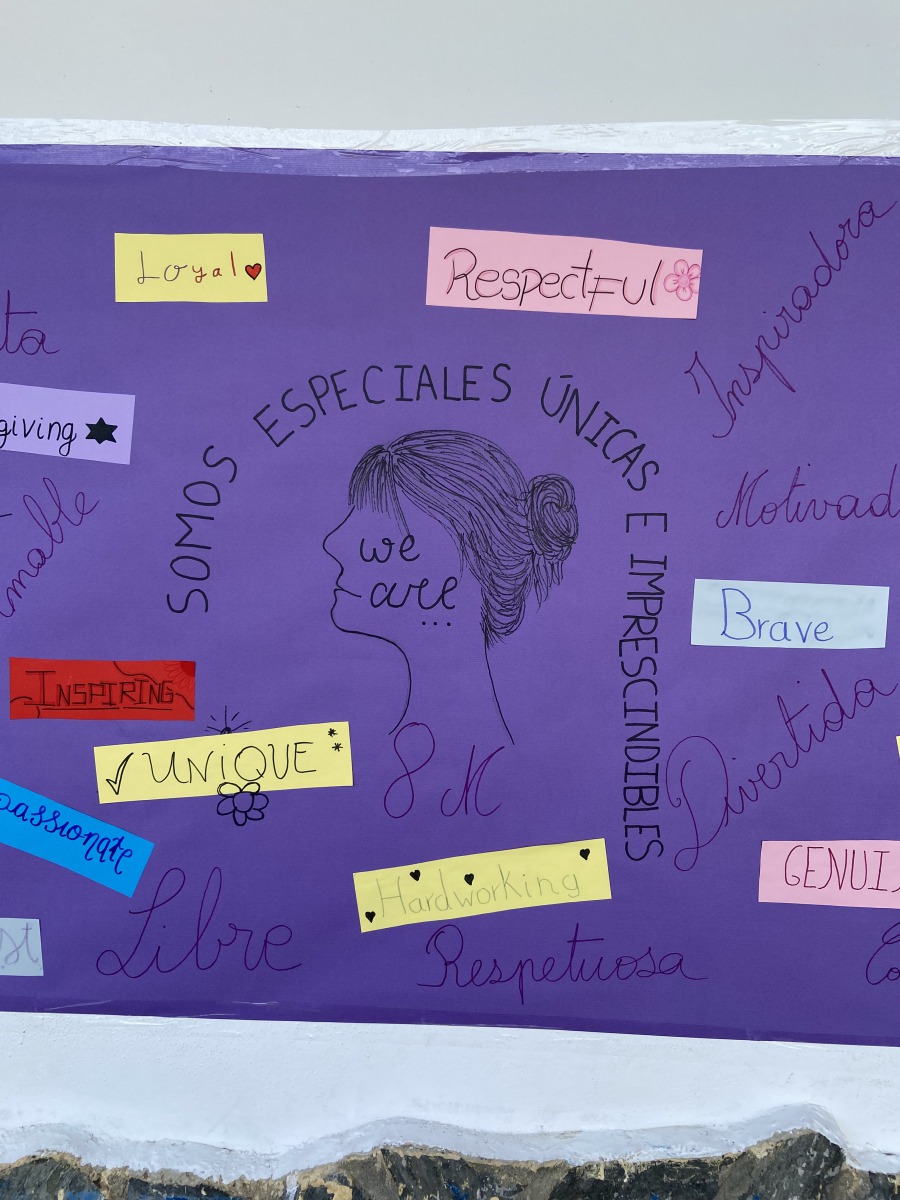 Loyal
RespectFul
Inspiradora
SOMOS ESPECIALES ÚNICAS E IMPRESCINDIBLES
giving
Motivad
we
are
...
Brave
INSPIRING
UNiQUE
Divertida
8 M
passionate
Hardworking
GENUI
Libre
Respetuosa